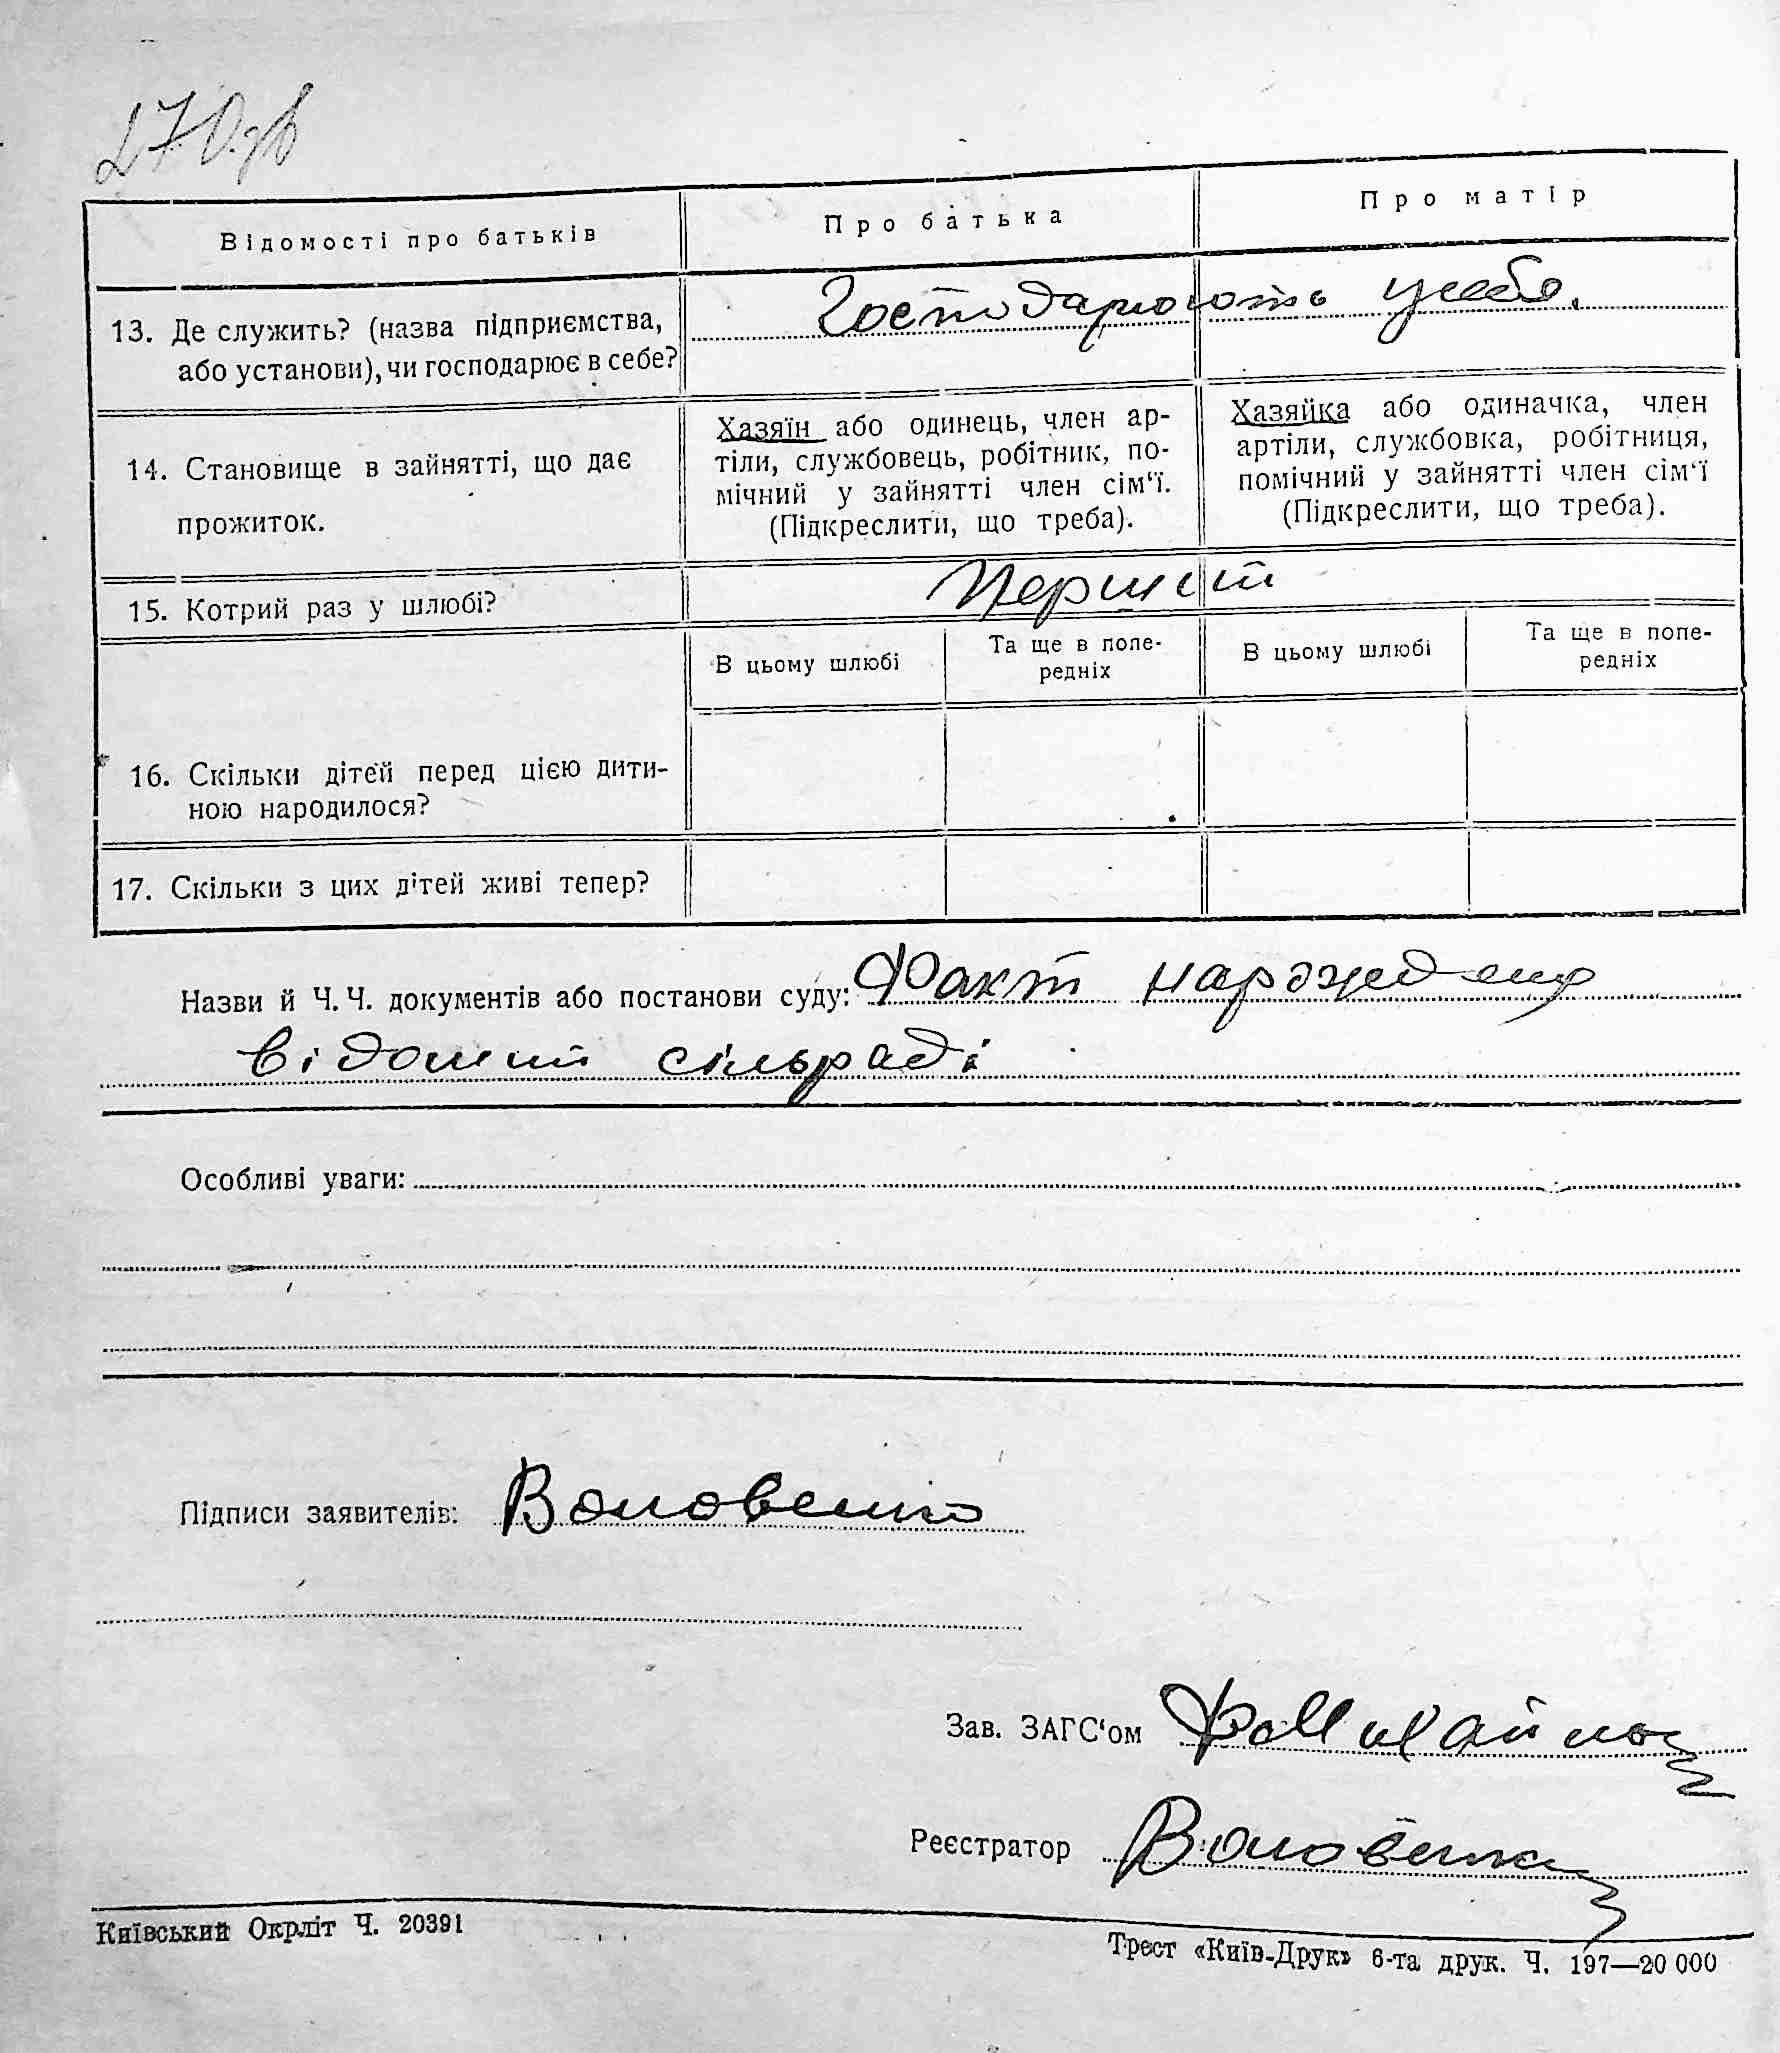 270 зв
Відомості про батьків
Про батька
Про матір
13. Де служить? (назва підприємства,
або установи), чи господарює в себе?
Господарюють у себе.
14. Становище в зайнятті, що дає
прожиток.
Хазяїн або одинець, член ар-
тіли, службовець, робітник, по-
мічний у зайнятті член сім‘ї.
(Підкреслити, що треба).
Хазяйка або одиначка, член
артіли, службовка, робітниця,
помічний у зайнятті член сім‘ї
(Підкреслити, що треба).
15. Котрий раз у шлюбі?
Перший
В цьому шлюбі
Та ще в попе-
редніх
В цьому шлюбі
Та ще в попе-
редніх
16. Скільки дітей перед цією дити-
ною народилося?
17. Скільки з цих дітей живі тепер?
Назви й Ч. Ч. документів або постанови суду: Факт народження
відомий сільраді
Особливі уваги:
Підписи заявителів: Воловенко
Зав. ЗАГС‘ом
Реєстратор Воловенко
Київський Окрліт Ч. 20391
Трест «Київ-Друк» 6-та друк. Ч. 197—20 000